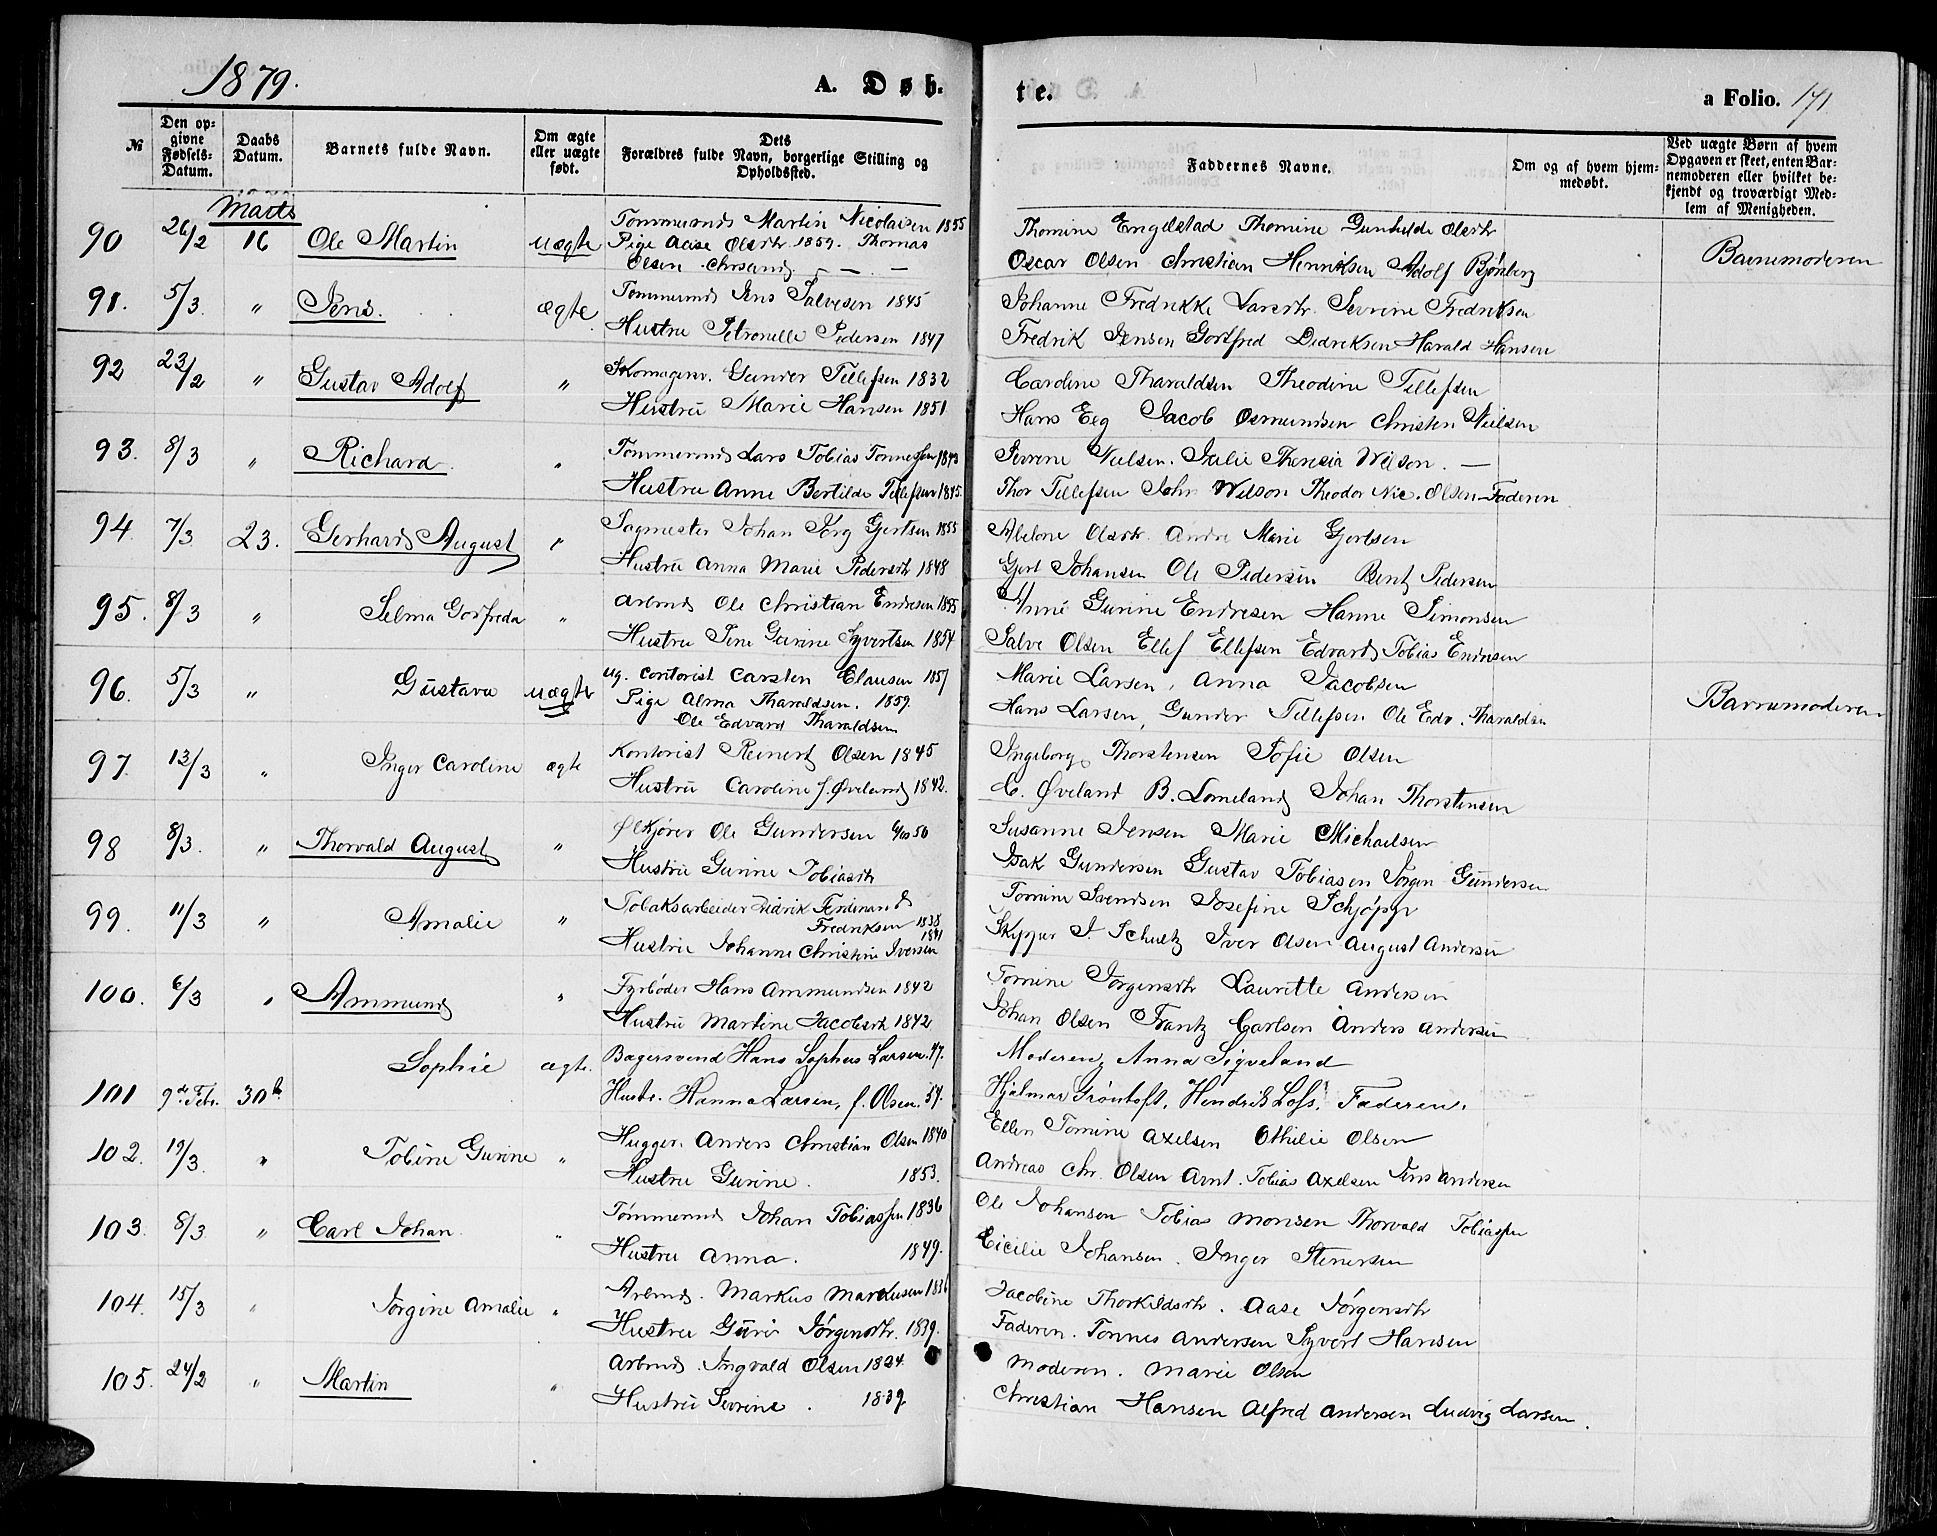 1879. A. Døb-
te. a Folio. 171.
№
Den opgivne Fødsels-Datum.
Daabs Datum.
Barnets fulde Navn.
Om ægte eller uægte født.
Dets Forældres fulde Navn, borgerlige Stilling og Opholdssted.
Faddernes Navne.
Om og af hvem hjemmedøbt.
Ved uægte Børn af hvem Opgaven er skeet, enten Barnemoderen eller hvilket bekjendt og troværdigt Medlem af Menigheden.
Marts
90 26/2 16 Ole Martin uægte Tømmermd Martin Nicolaisen 1855
Pige Aase Olsdtr 1859. Thomas
Olsen Chrsand. — —
Thomine Engelstad Thomine Gunhilde Olsdtr
Oscar Olsen Christian Henriksen Adolf Bjønberg
Barnemoderen
91. 5/3 " Jens. ægte. Tømmermd Jens Salvesen 1845
Hustru Petronelle Pedersen 1847
Johanne Fredrikke Larsdtr. Severine Fredriksen
Fredrik Jensen Gotfred Didriksen Harald Hansen
92 23/2 " Gustav Adolf " Skomagersv. Gunder Tellefsen 1832
Hustru Marie Hansen 1851
Caroline Tharaldsen Theodine Tellefsen
Hans Eeg Jacob Osmundsen Christen Nielsen
93. 8/3 " Richard. " Tømmermd Lars Tobias Tønnessen 1843
Hustru Anne Bertilde Tellefsen 1845.
Severine Nielsen. Julie Theresia Wilson. —
Thor Tellefsen John Wilson Theodor Nic. Olsen – Faderen
94. 7/3 23. Gerhard August " Sagmester Johan Jørg Gjertsen 1855
Hustru Anna Marie Pedersdtr 1848
Abelone Olsdtr. Andre Marie Gjertsen
Gjert Johansen Ole Pedersen Bent Pedersen
95. 8/3 " Selma Gotfreda " Arbmd Ole Christian Endresen 1855
Hustru Sine Gurine Syvertsen 1854
Anne Gurine Endresen Hanne Simonsen
Salve Olsen Ellef Ellefsen Edvard Tobias Endresen
96. 5/3 " Gustava uægte ug. Contorist Carsten Clausen 1857
Pige Alma Tharaldsen. 1859.
Ole Edvard Tharaldsen
Marie Larsen, Anna Jacobsen
Hans Larsen, Gunder Tellefsen Ole Edv. Tharaldsen
Barnemoderen
97. 13/3 " Inger Caroline ægte Kontorist Reinert Olsen 1845
Hustru Caroline f. Øveland 1842.
Ingeborg Thorstensen Sofie Olsen
C. Øveland B. Lomeland Johan Thorstensen
98 8/3. " Thorvald August " Ølkjører Ole Gundersen 50
Hustru Gurine Tobiasdtr
Susanne Jensen Marie Michaelsen
Isak Gundersen Gustav Tobiasen Jørgen Gundersen
99. 11/3 " Amalie " Tobaksarbeider Didrik Ferdinand
Fredriksen 1838
Hustru Johanne Christine Iversen 1841
Tomine Svendsen Josefine
Skipper J. Schultz Iver Olsen August Andersen
100. 6/3 " Ammund " Fyrbøder Hans Ammundsen 1842
Hustru Martine Jacobsdtr 1842
Tomine Jørgensdtr Laurette Andersen
Johan Olsen Frantz Carlsen Anders Andersen
101 9de Febr. 30te Sophie ægte. Bagersvend Hans Sophus Larsen. 47.
Hustr. Hanna Larsen, f. Olsen. 57.
Moderen, Anna Sigveland
Hjalmar Grøntoft, Hendrik Loss. Faderen.
102. 19/3. " Tobine Gurine " Hugger. Anders Christian Olsen 1840
Hustru Gurine. 1853.
Ellen Tomine Axelsen Othilie Olsen
Andreas Chr. Olsen Arnt. Tobias Axelsen Jens Andersen
103. 8/3 " Carl Johan " Tømmermd Johan Tobiassen 1836
Hustru Anna. 1849.
Ole Johansen Tobias Monsen Thorvald Tobiassen
Cicilie Johansen. Inger Stenersen
104. 15/3 " Jørgine Amalie " Arbmd. Markus Markusen 1836
Hustru Guri Jørgensdtr. 1839.
Jacobine Thorkildsdtr. Aase Jørgensdtr
Faderen. Tønnes Andersen Syvert Hansen
105. 24/2 " Martin " Arbmd. Ingvald Olsen 1824.
Hustru Severine. 1839
Moderen. Marie Olsen
Christian Hansen Alfred Andersen Ludvig Larsen.